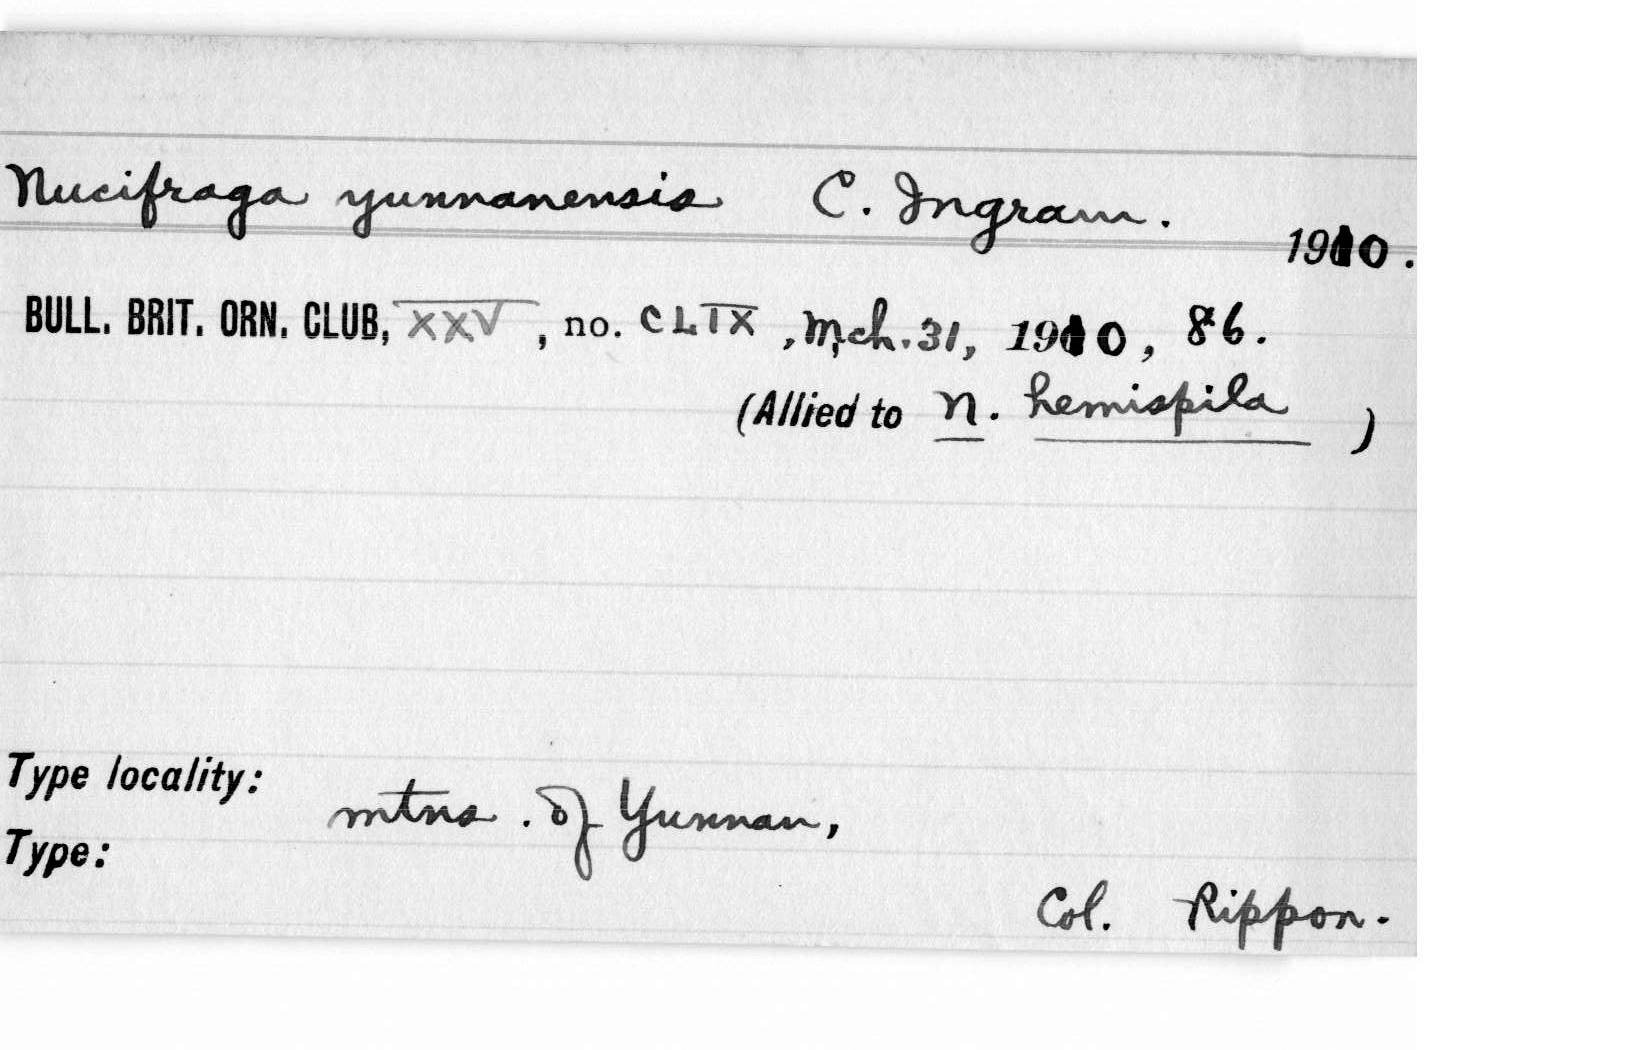 Nucifraga yunnanensis C. Ingram.
1910.
BULL. BRIT. ORN. CLUB, XXV, no. CLIX, Mch. 31, 1910, 86.
(Allied to N. hemispila )
Type locality:
mtns. of Yunnan,
Type:
Col. Rippon.